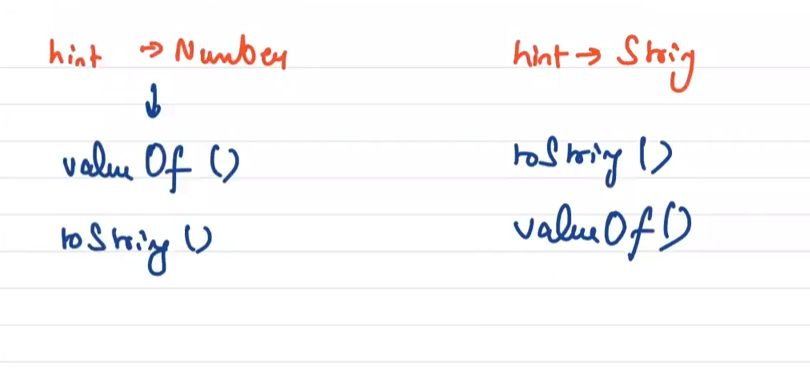 hint → Number
↓
valueOf ()
toString ()
hint → Strig
toStrig ()
valueOf()